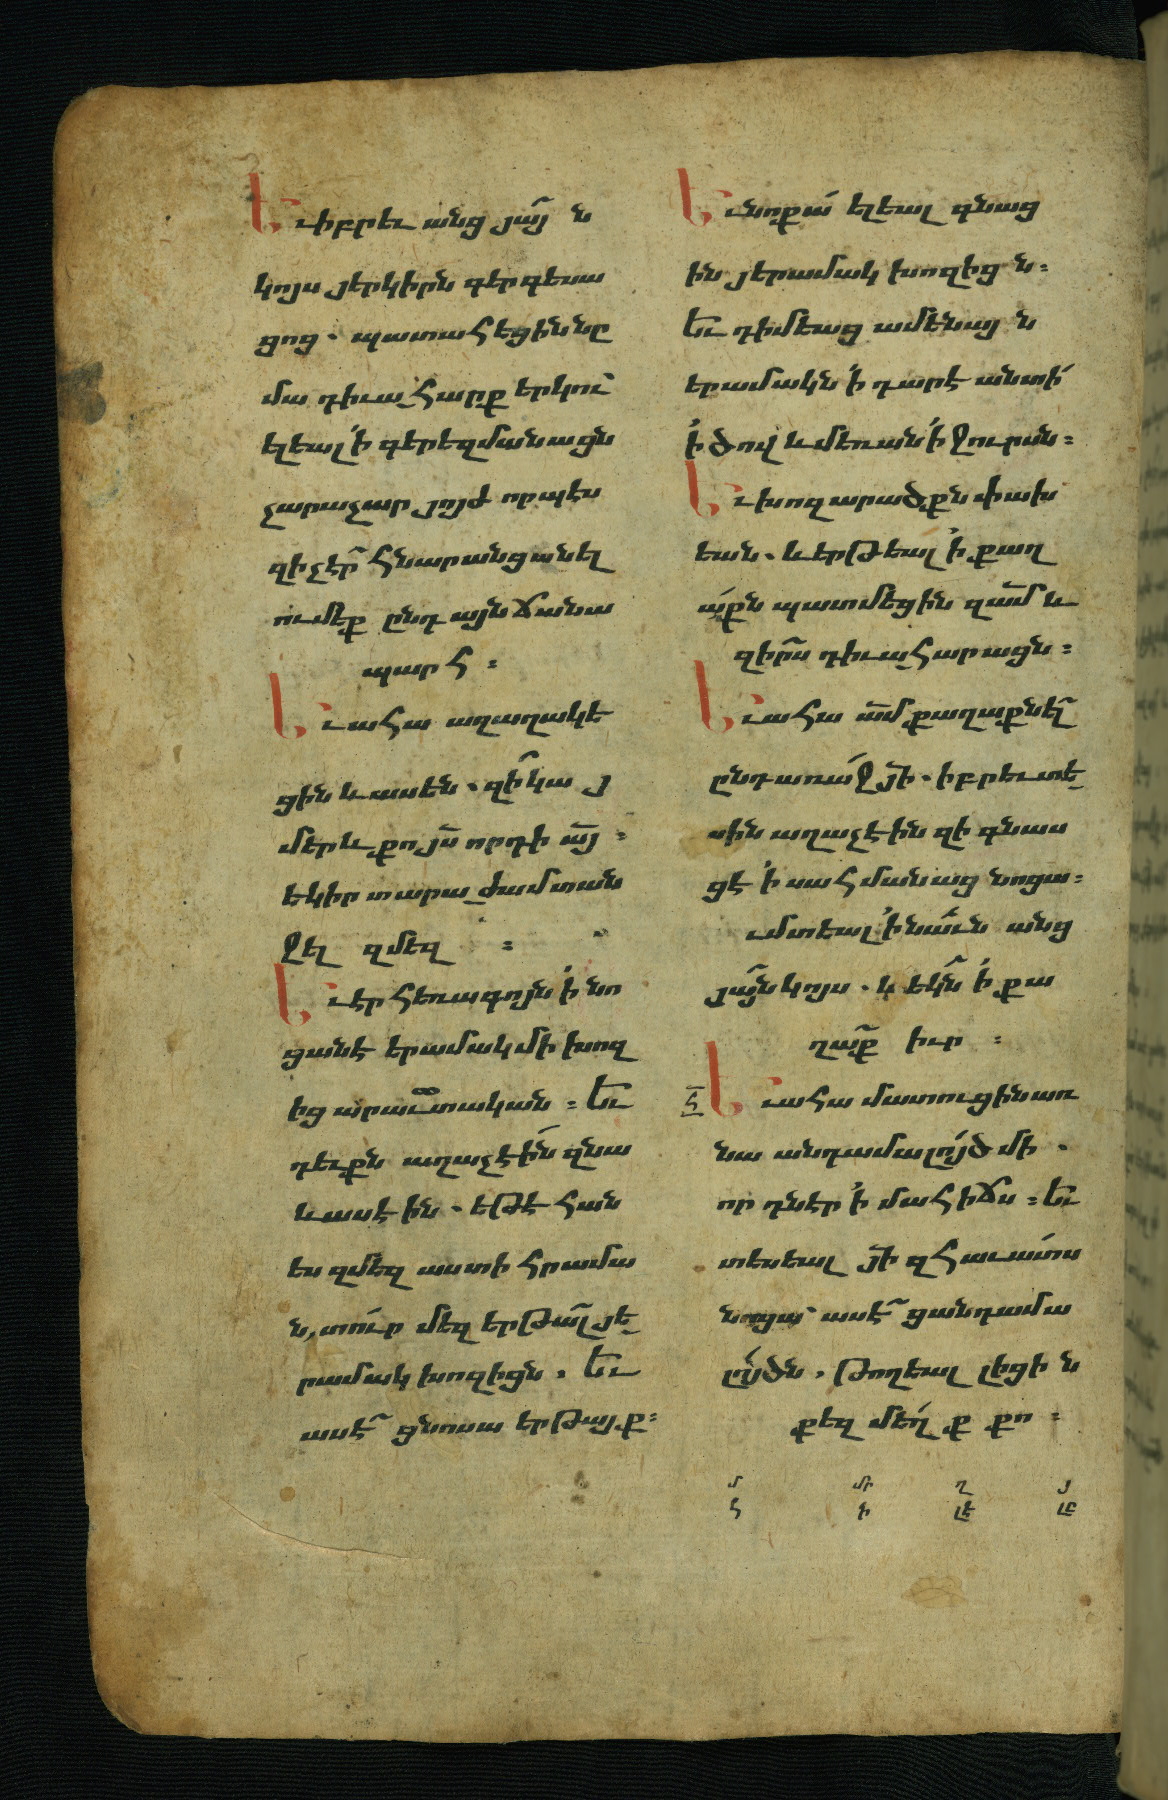 Եւ իբրեւ անց յայն
կոյս յերկիրն գերգեսա
ցոց . պատահեցին նը
մա դիւահարք երկու
ելեալ ՚ի գերեզմանացն
չարաչար յոյժ որպէս
զի չէր հնար անցանել
ումեք ընդ այն ճանա
պարհ :
Եւ ահա աղաղակե
ցին և ասեն . զի կա յ
մեր և քո յս որդի այ :
եկիր տարաժամ տան
ջել զմեզ :
Եւ էր հեռագոյն ՚ի նո
ցանէ երամակ մի խոզ
ից արաւտական : Եւ
դեւքն աղաչէին զնա
և ասէին . եթէ հան
ես զմեզ աստի հրամա
ն, տուր մեզ երթալ յե
րամակ խոզիցն . Եւ
ասէ ցնոսա երթայք :
Եւ նոքա ելեալ գնաց
ին յերամակ խոզիցն :
Եւ դիմեաց ամենայն
երամակն ՚ի դարէ անտի
՚ի ծով և մեռան ՚ի ջուրսն :
Եւ խոզարածքն փախ
եան . և երթեալ ՚ի քաղ
աքն պատմեցին զամ և
զիրս դիւահարացն :
Եւ ահա ամ քաղաքն ել
ընդ առաջ յի . իբրեւ տե
սին աղաչէին զի գնաս
ցէ ՚ի սահմանաց նոցա :
Մտեալ ՚ի նաւն անց
յայնկոյս . և եկն ՚ի քա
ղաք իւր :
Հ Եւ ահա մատուցին առ
նա անդամալոյծ մի .
որ դնէր ՚ի մահիճս : Եւ
տեսեալ յի զհաւատս
նոցա՝ ասէ ցանդամա
լոյծն . թողեալ լիցին
քեզ մեղք քո :
մ մր ղ յ
հ ի լէ լբ